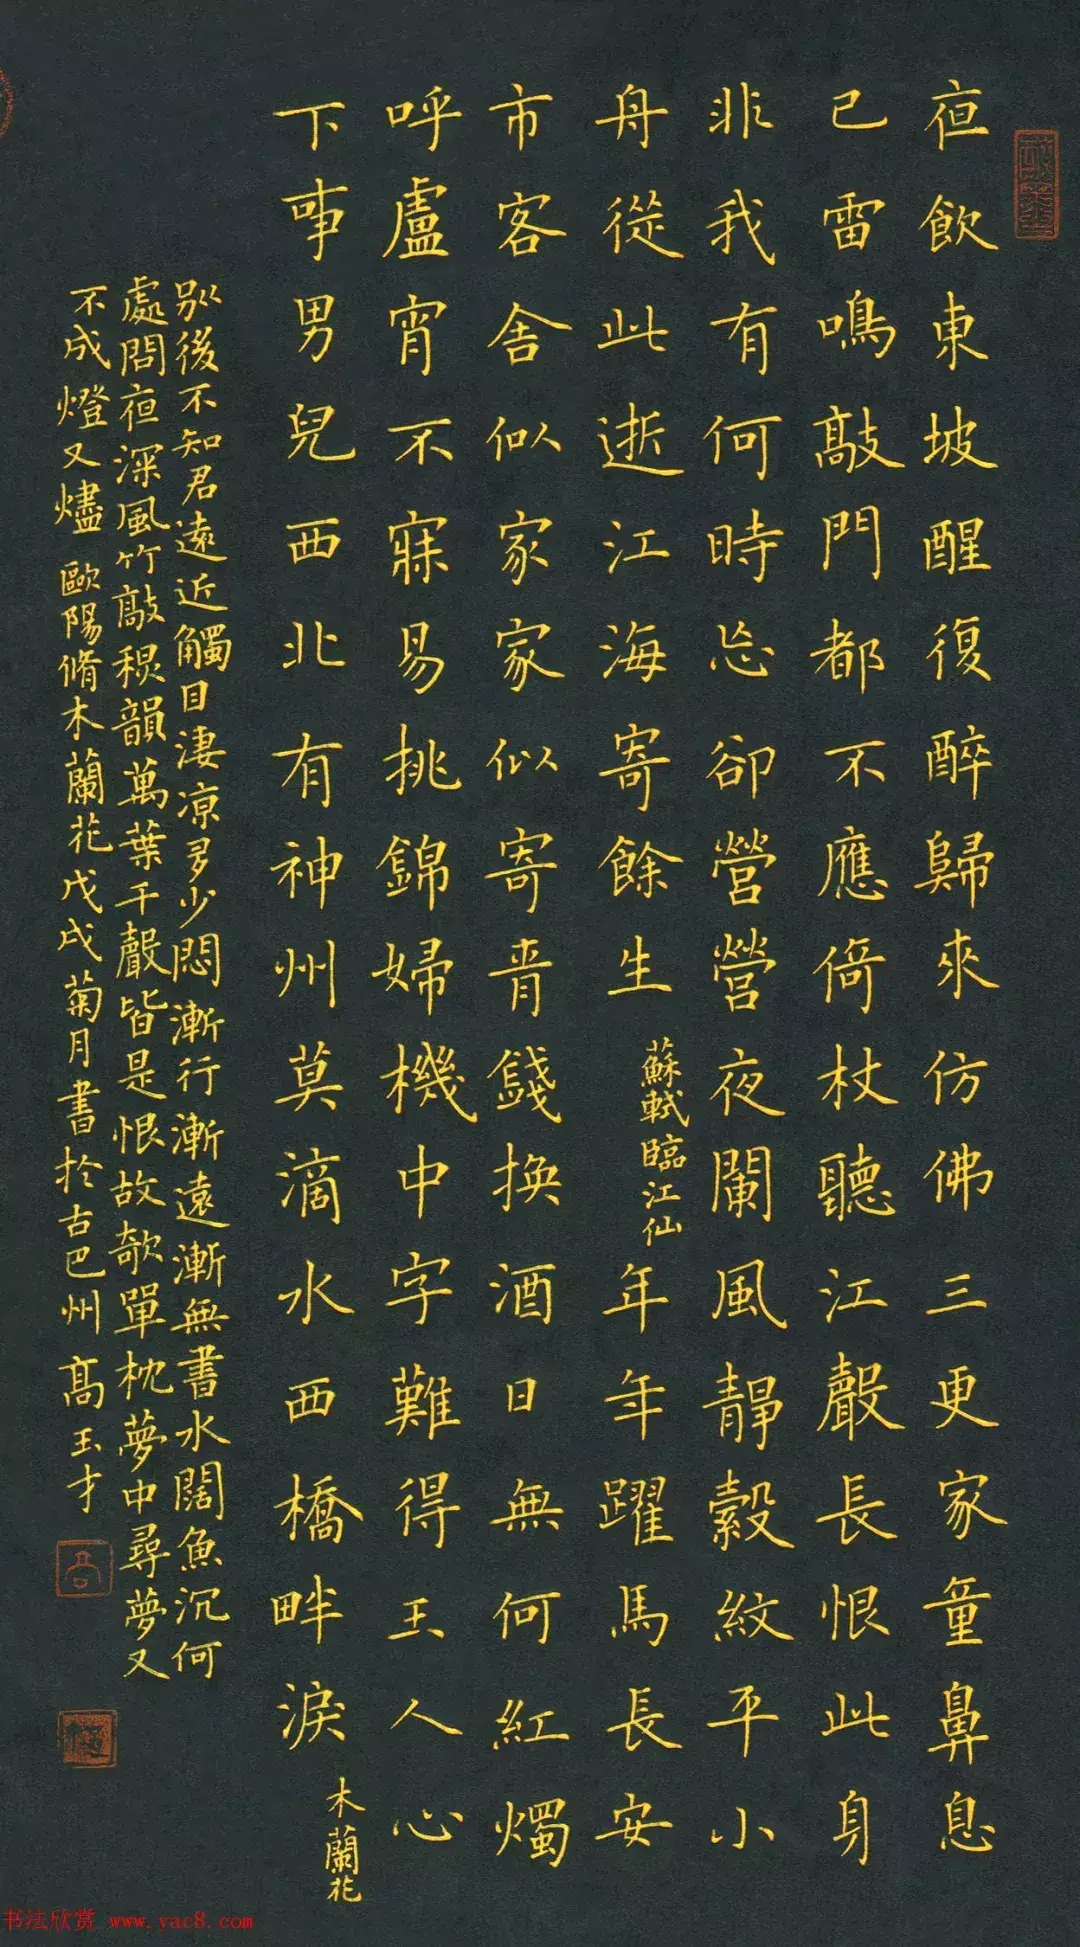 夜飲東坡醒復醉歸來仿佛三更家童鼻息
已雷鳴敲門都不應倚杖聽江聲長恨此身
非我有何時忘卻營營夜闌風靜縠紋平小
舟從此逝江海寄餘生 蘇軾臨江仙 年年躍馬長安
市客舍似家家似寄青錢換酒日無何紅燭
呼盧宵不寐易挑錦婦機中字難得玉人心
下事男兒西北有神州莫滴水西橋畔淚 木蘭花
別後不知君遠近觸目淒涼多少悶漸行漸遠漸無書水闊魚沉何
處問夜深風竹敲秋韻萬葉千聲皆是恨故欹單枕夢中尋夢又
不成燈又燼 歐陽脩木蘭花戊戌菊月書於古巴州 高玉才
高
书法欣赏 www.yac8.com